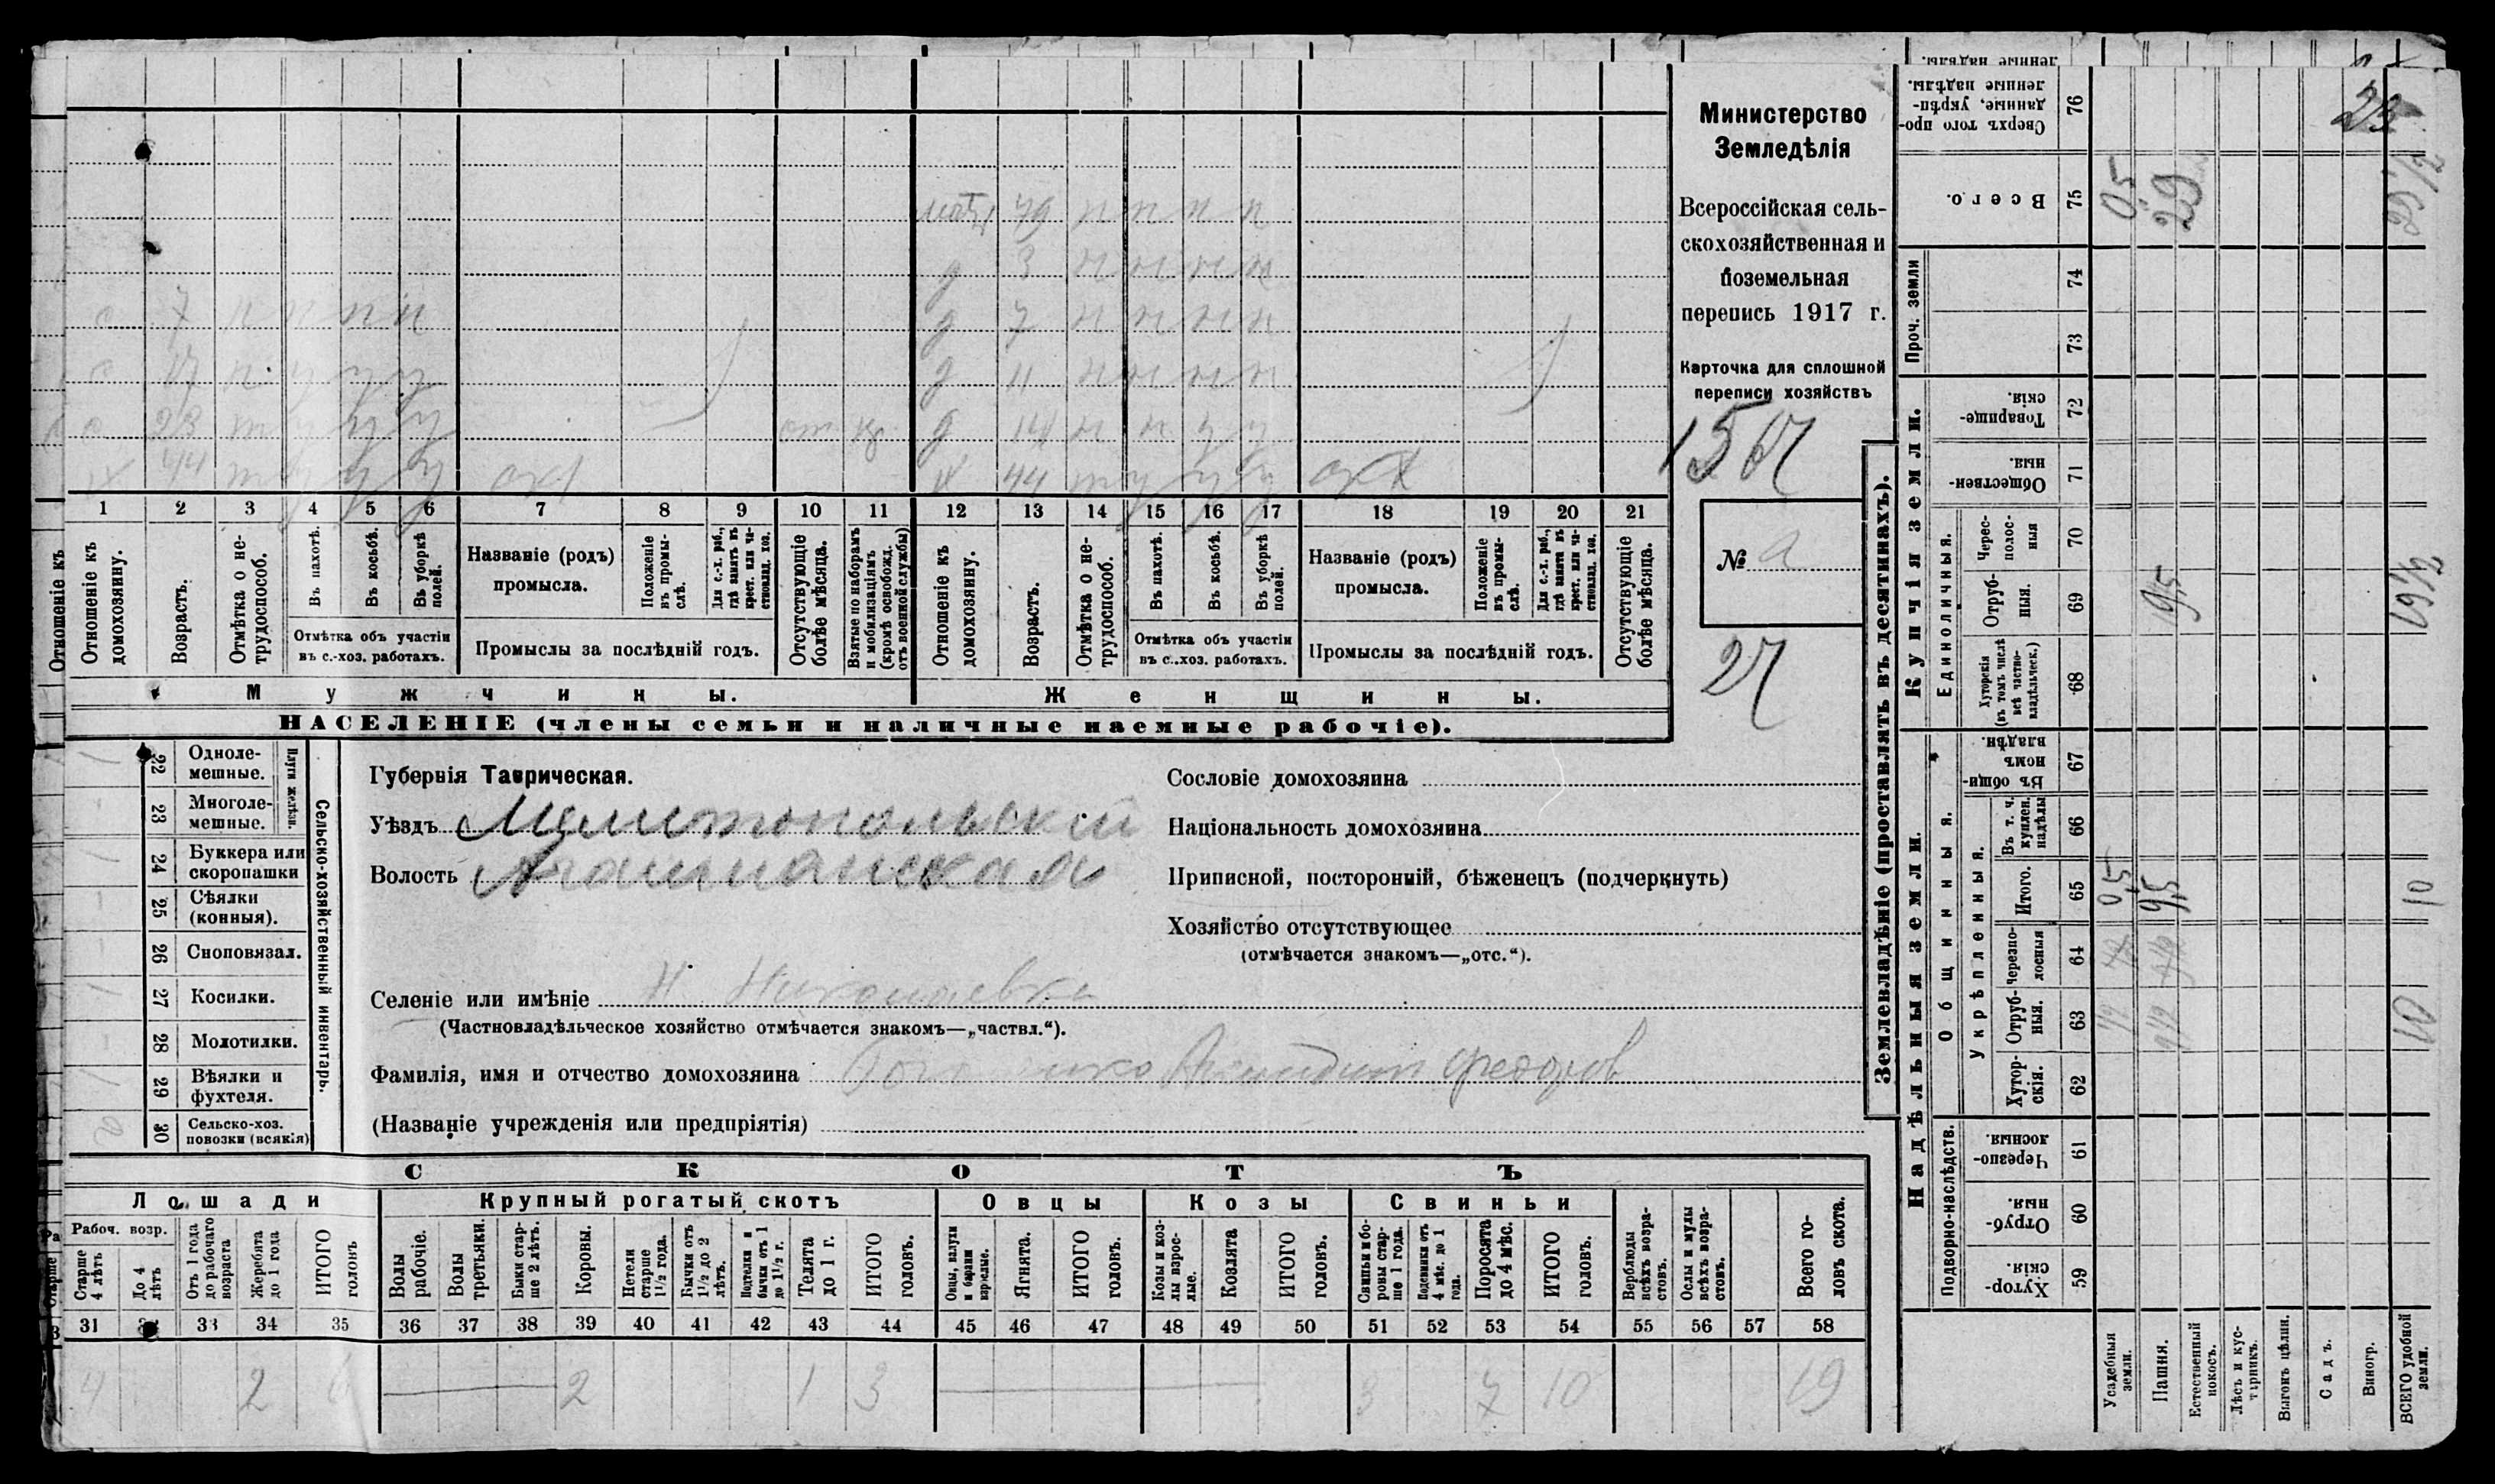 Министерство
Земледѣлія
Всероссійская сель-
скохозяйственная и
поземельная
перепись 1917 г.
Карточка для сплошной
переписи хозяйствъ
1567
№ а
27
мать 79 н н н н
д 3 н н н н
с 7 н н н н
д 7 н н н н
с 17 н у у у
д 11 н н н н
с 23 т у у у
от
д 14 н н у у
х 44 т у у у
х 44 т у у у
1 2 3 4 5 6 7 8 9 10 11 12 13 14 15 16 17 18 19 20 21
Отношеніе къ
Отношеніе къ домохозяину.
Возрастъ.
Отмѣтка о не-трудоспособ.
Въ пахотѣ.
Въ косьбѣ.
Въ уборкѣ полей.
Отмѣтка объ участіи
въ с.-хоз. работахъ.
Названіе (родъ)
промысла.
Положеніе въ промы-слѣ.
Для с.-х. раб., гдѣ занятъ въ крест. или ча-стновлад. хоз.
Промыслы за послѣдній годъ.
Отсутствующіе болѣе мѣсяца.
Взятые по наборамъ и мобилизаціямъ (кромѣ освобожд. отъ военной службы)
Отношеніе къ домохозяину.
Возрастъ.
Отмѣтка о не-трудоспособ.
Въ пахотѣ.
Въ косьбѣ.
Въ уборкѣ полей.
Отмѣтка объ участіи
въ с.-хоз. работахъ.
Названіе (родъ)
промысла.
Положеніе въ промы-слѣ.
Для с.-х. раб., гдѣ занятъ въ крест. или ча-стновлад. хоз.
Промыслы за послѣдній годъ.
Отсутствующіе болѣе мѣсяца.
Мужчины.
Женщины.
НАСЕЛЕНІЕ (члены семьи и наличные наемные рабочіе).
Сельско-хозяйственный инвентарь.
Плуги желѣзн.
22 Одноле-мешные.
23 Многоле-мешные.
24 Буккера или скоропашки
25 Сѣялки (конныя).
26 Сноповязал.
27 Косилки.
28 Молотилки.
29 Вѣялки и фухтеля.
30 Сельско-хоз. повозки (всякія)
2
Губернія Таврическая.
Уѣздъ Мелитопольскій
Волость
Селеніе или имѣніе Н Николаевка
(Частновладѣльческое хозяйство отмѣчается знакомъ—„частвл.“).
Фамилія, имя и отчество домохозяина Федоров
(Названіе учрежденія или предпріятія)
Сословіе домохозяина
Національность домохозяина
Приписной, посторонній, бѣженецъ (подчеркнуть)
Хозяйство отсутствующее
(отмѣчается знакомъ—„отс.“).
СКОТЪ
Лошади
Рабоч. возр.
Старше 4 лѣтъ
До 4 лѣтъ
Отъ 1 года до рабочаго возраста
Жеребята до 1 года
ИТОГО головъ
Крупный рогатый скотъ
Волы рабочіе.
Волы третьяки.
Быки стар-ше 2 лѣтъ.
Коровы.
Нетели старше 1½ года.
Бычки отъ 1½ до 2 лѣтъ.
Подтелки и бычки отъ 1 до 1½ г.
Телята до 1 г.
ИТОГО головъ.
Овцы
Овцы, валухи и бараны взрослые.
Ягнята.
ИТОГО головъ.
Козы
Козы и коз-лы взрос-лые.
Козлята
ИТОГО головъ.
Свиньи
Свиньи и бо-ровы стар-ше 1 года.
Подсвинки отъ 4 мѣс. до 1 года.
Поросята до 4 мѣс.
ИТОГО головъ.
Верблюды всѣхъ возра-стовъ.
Ослы и мулы всѣхъ возра-стовъ.
Всего го-ловъ скота.
31 33 34 35 36 37 38 39 40 41 42 43 44 45 46 47 48 49 50 51 52 53 54 55 56 57 58
4 2 6 2 1 3 3 7 10 19
Землевладѣніе (проставлять въ десятинахъ).
Надѣльныя земли.
Купчія земли.
Проч. земли
Подворно-наслѣдств.
Общинныя.
Укрѣпленныя.
Единоличныя.
Хутор-скія. 59
Отруб-ныя. 60
Черезпо-лосныя. 61
Хутор-скія. 62
Отруб-ныя. 63
Черезпо-лосныя 64
Итого. 65
Въ т. ч. куплен. надѣлы 66
Въ общи-номъ владѣн. 67
Хуторскія (въ томъ числѣ всѣ частно-владѣльческ.) 68
Отруб-ныя. 69
Черес-полос-ныя 70
Обществен-ныя. 71
Товарище-скія. 72
73
74
Всего. 75
Сверхъ того про-данные, укрѣп-ленные надѣлы. 76
ленные надѣлы.
Усадебныя земли.
Пашня.
Естественный покосъ.
Лѣсъ и кус-тарникъ.
Выгонъ цѣлин.
Садъ.
Виногр.
ВСЕГО удобной земли.
0,5
29
0,5
9,5
19,5
10
10
19½
29½
23